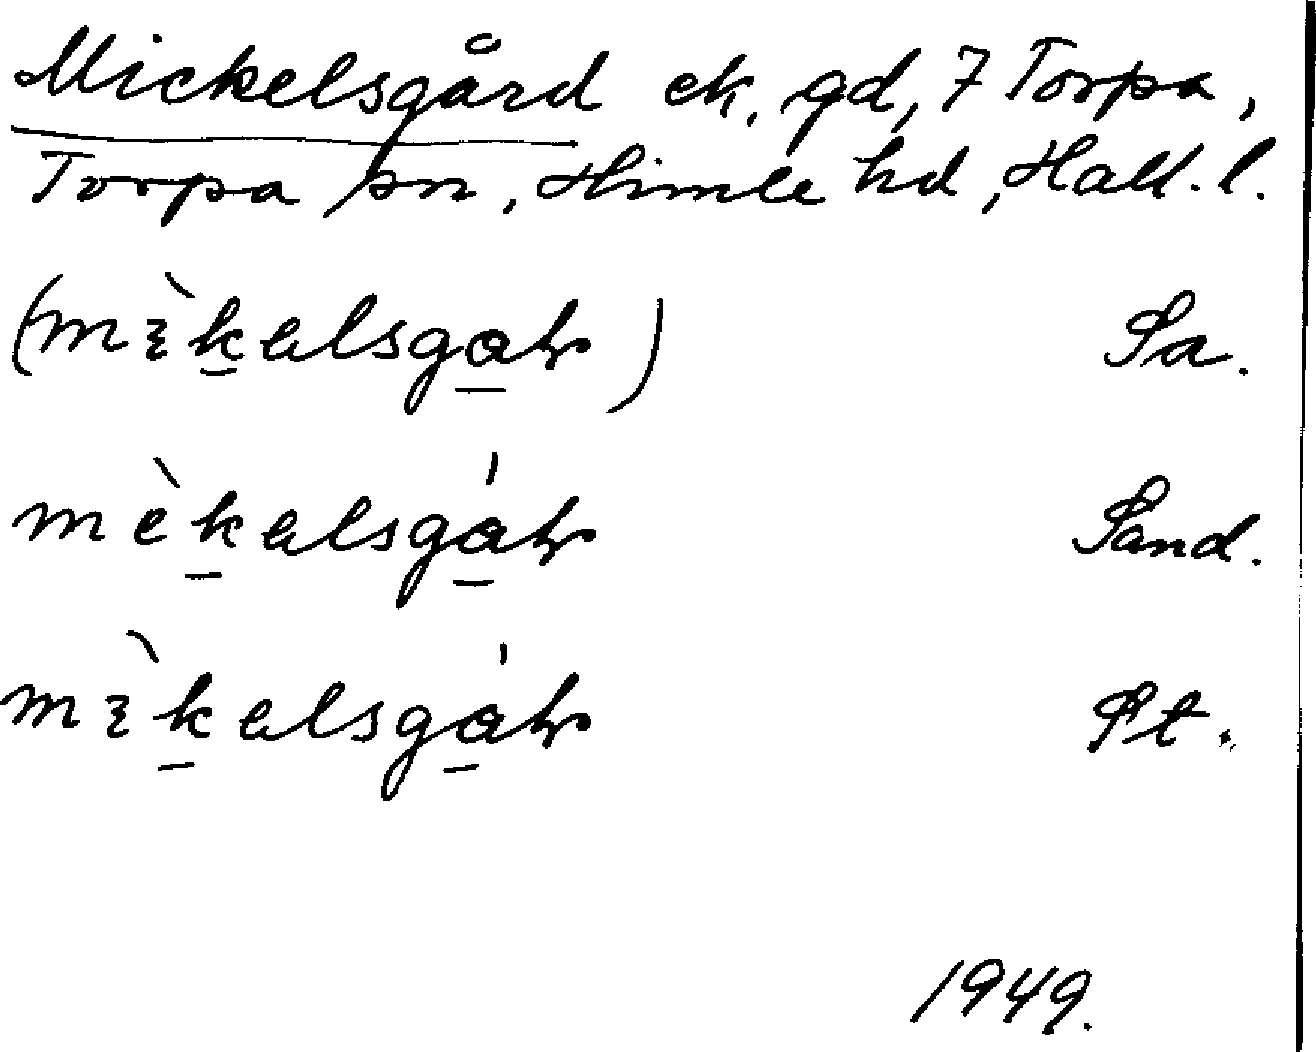 Mickelsgård ek. gd, 7 Torpa,
Torpa sn, Himle hd, Hall. l.
Sa.
Sand.
St.
1949.